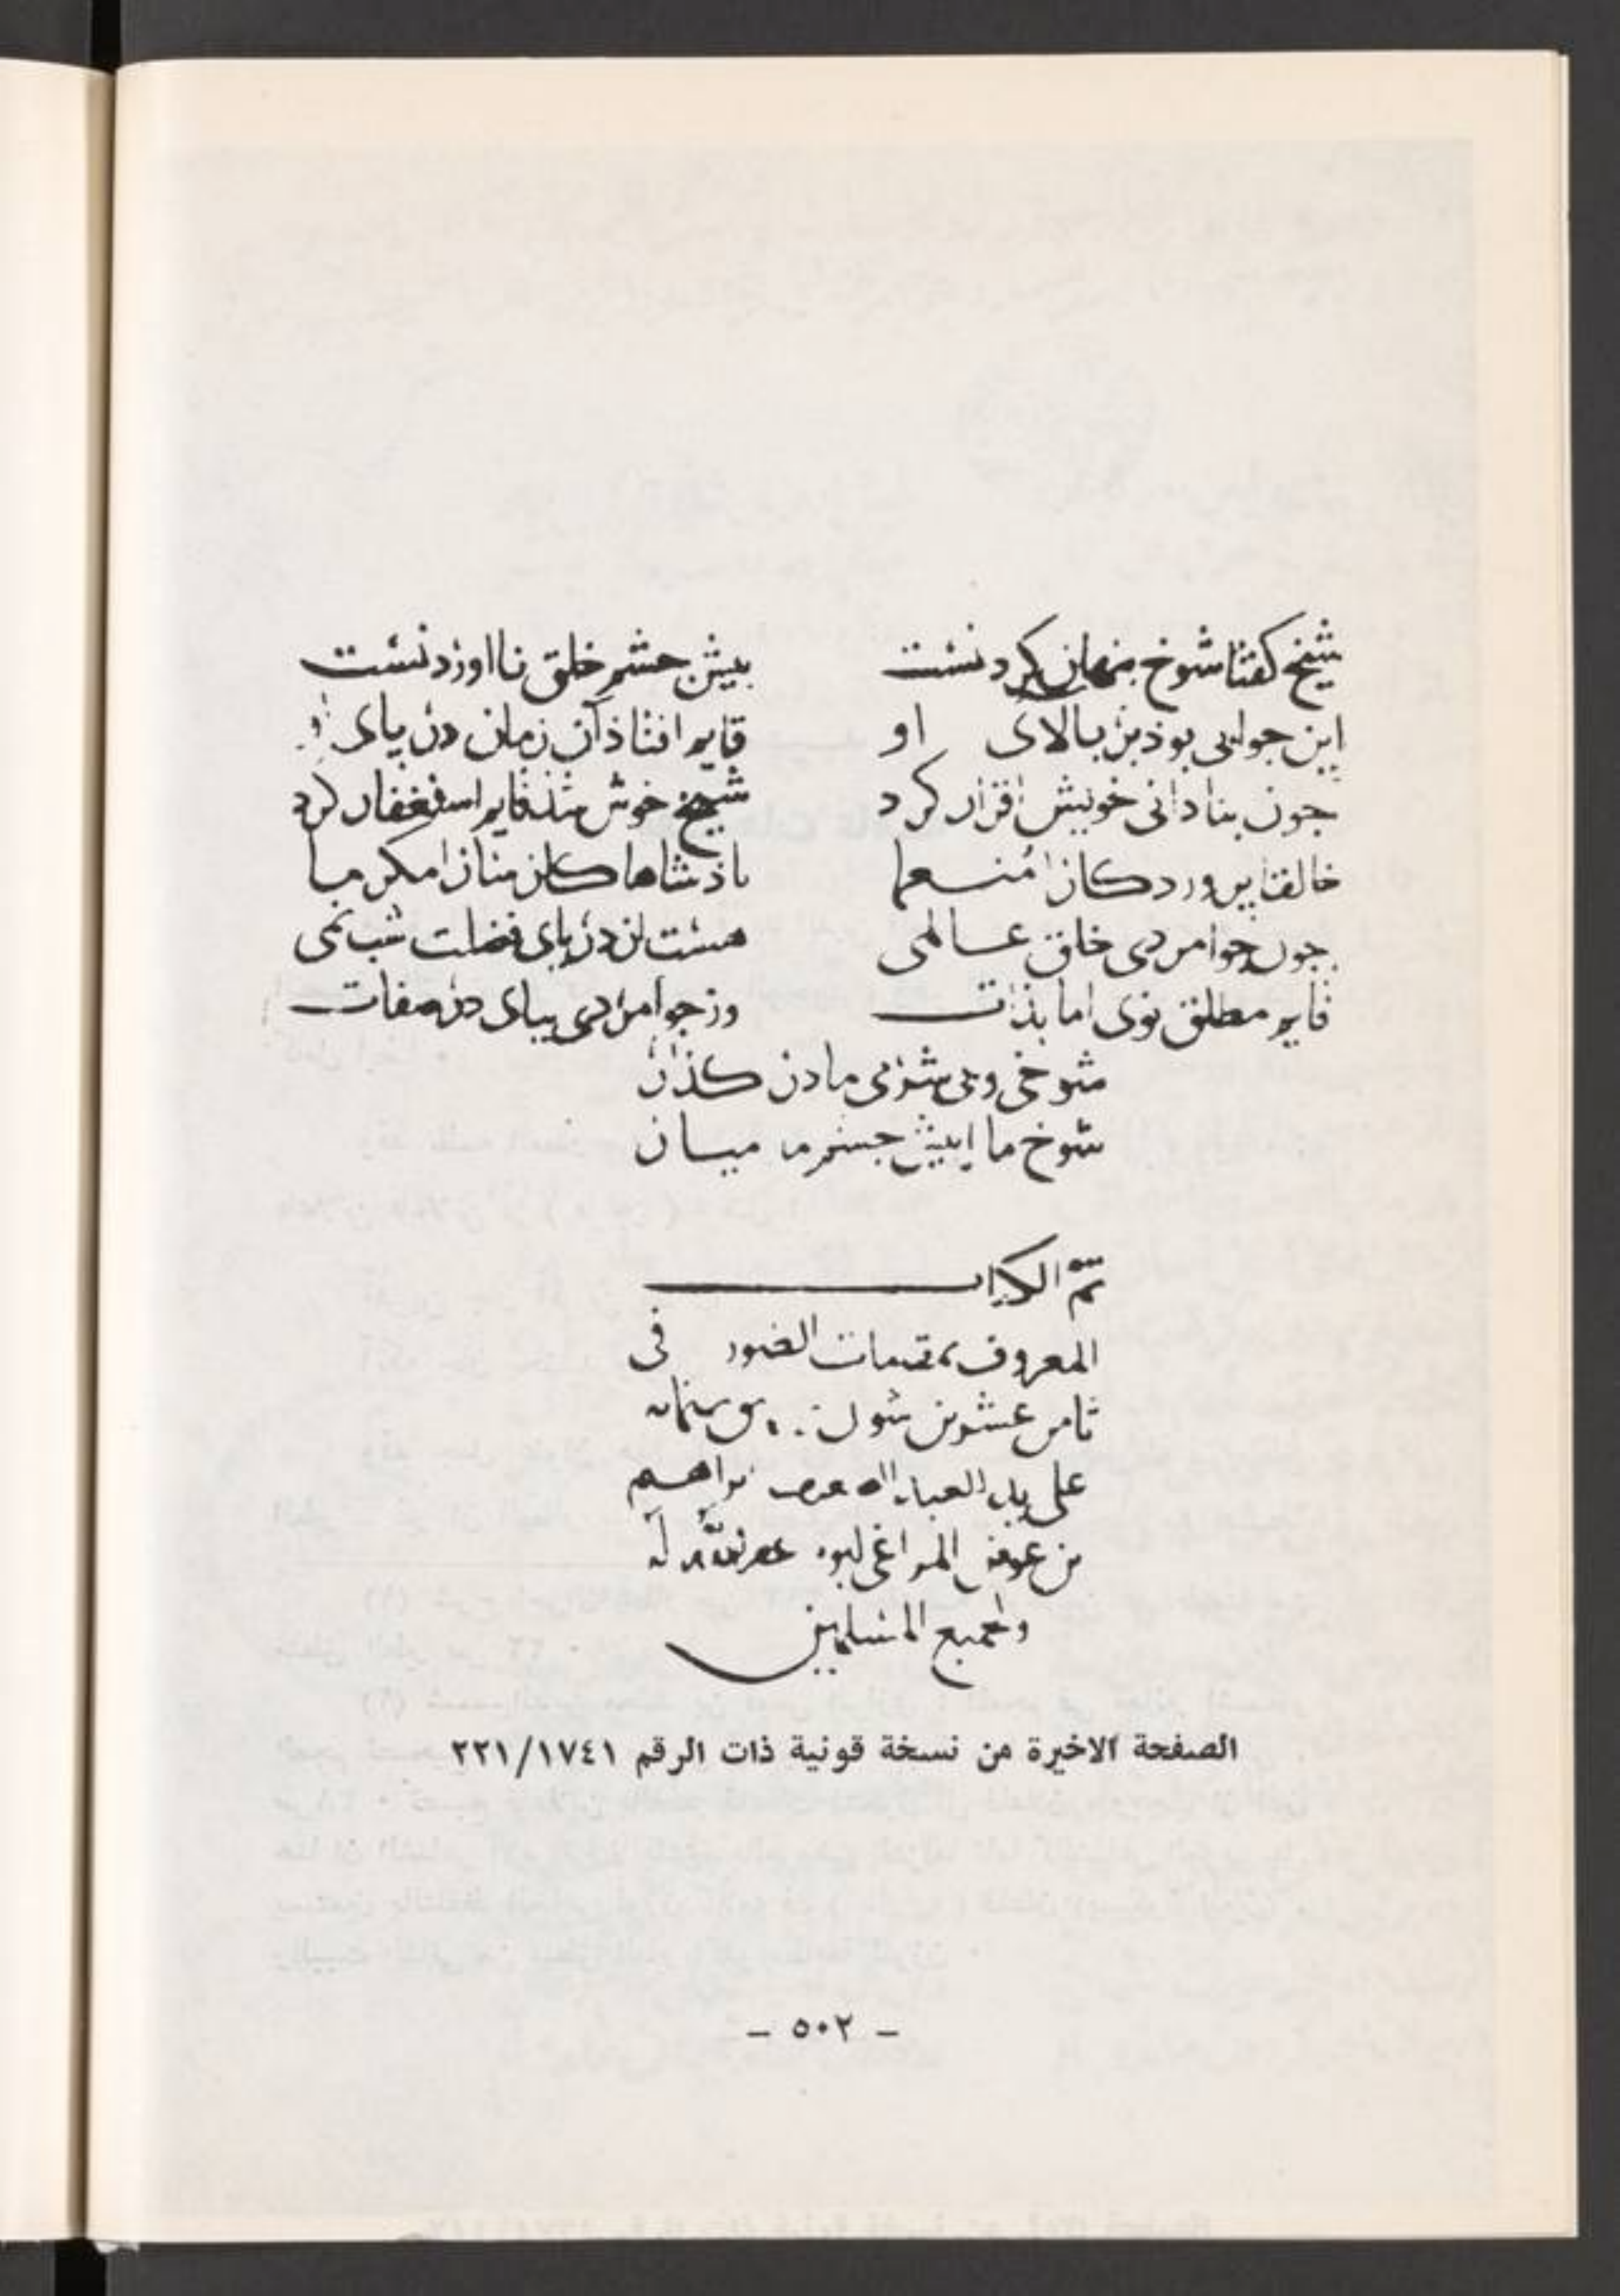 شیخ کفتا شوخ بنهان کردنست بیش جشم خلق نااوردنست
این جوابی بوذ بر بالای او قایم افتاذ آن زمان در بای او
جون بنادانی خویش اقرار کرد شیخ خوش شذ قایم استغفار کرد
خالقا بروردکارا منعما باذشاها کارسازا مکرما
جون جوامردی خلق عالمی هست از دریای فضلت شبنمی
قایم مطلق توی اما بذات وز جوامردی بیای در صفات
شوخی و بی شرمی ما در کذار
شوخ ما را بیش جشم ما میار
تم الکتاب
المعروف بمقامات الطیور فی
ثامن عشرین شوال
علی ید العبد ابراهیم
بن عوض المراغی غفر الله له
ولجمیع المسلمین
الصفحة الاخيرة من نسخة قونية ذات الرقم ٢٢١/١٧٤١
- ٥٠٢ -